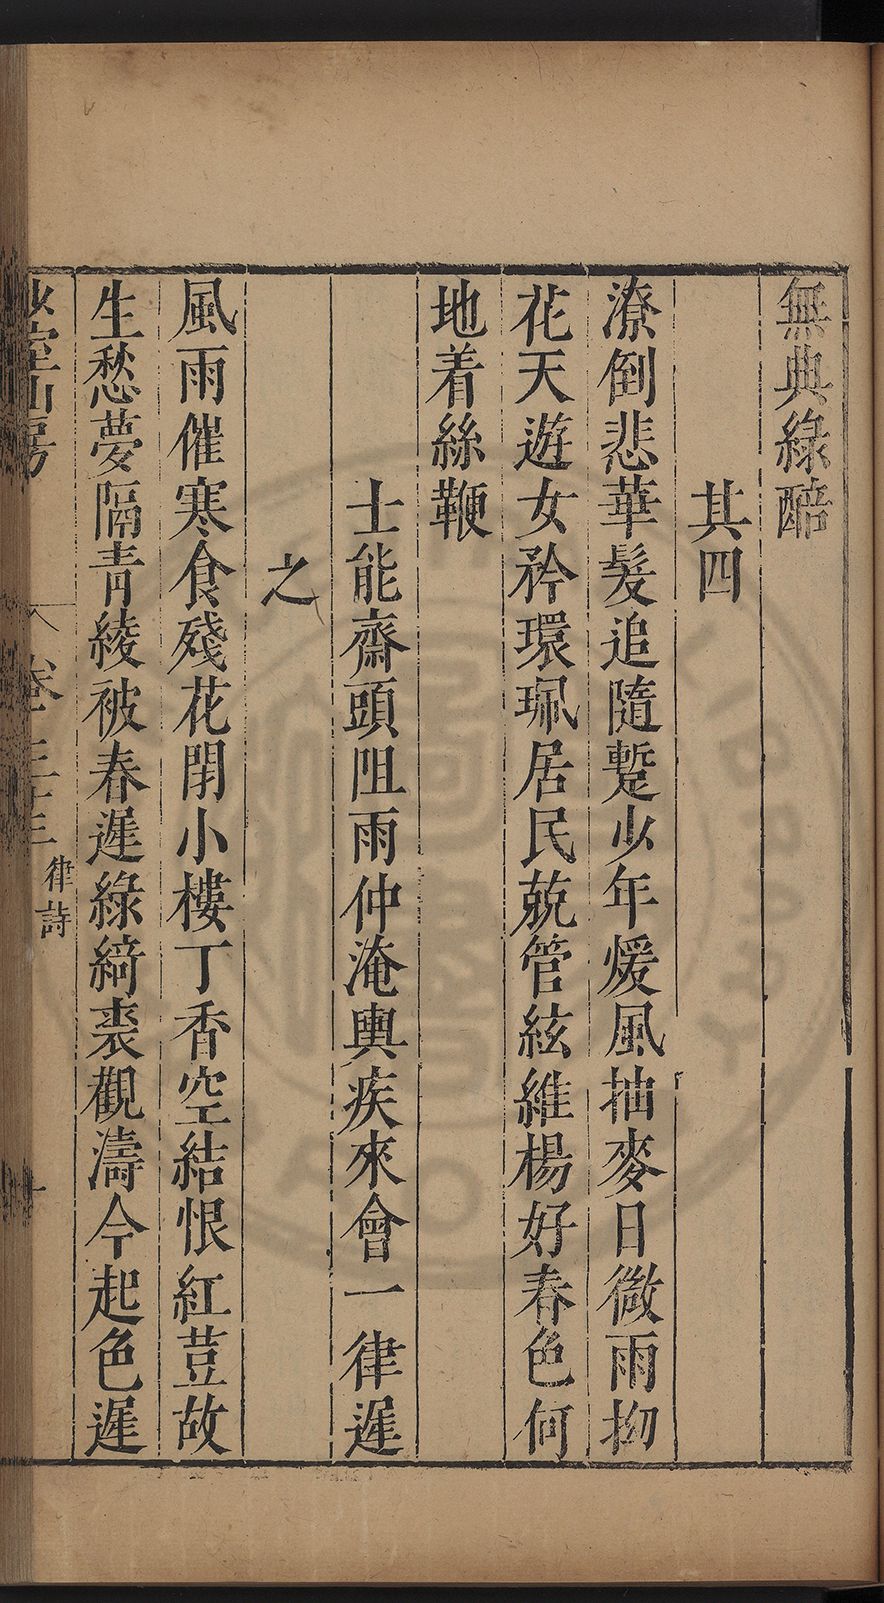 無典綠醅
其四
潦倒悲華髮追隨蹔少年煖風抽麥日微雨抝
花天遊女矜環珮居民兢管絃維楊好春色何
地着絲鞭
士能齋頭阻雨仲淹輿疾來會一律遲
之
風雨催寒食殘花閉小樓丁香空結恨紅荳故
生愁夢隔青綾被春遲綠綺裘觀濤今起色遲
山房
律詩